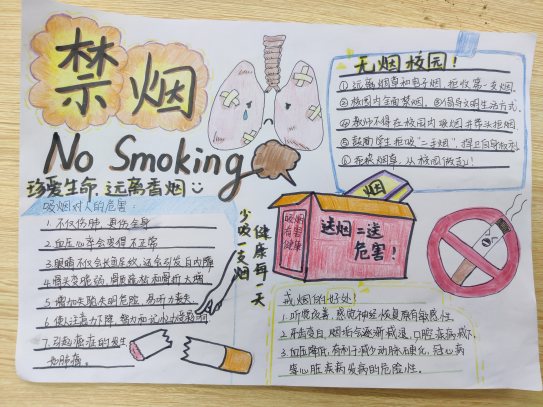 禁烟
No Smoking
珍爱生命,远离香烟
吸烟对人的危害:
1.不仅伤肺,更伤全身
2.血压心率会变得不正常
3.眼睛不仅会长血丝,还会引发白内障
4.骨头变脆弱,骨质疏松和骨折大增
5.增加失聪失明危险,易听力丧失
6.使人注意力下降,智力和记忆力受影响
7.引起癌症的发生
如肺癌。
少吸一支烟
健康每一天
无烟校园!
①远离烟草和电子烟,拒收第一支烟.
②校园内全面禁烟,③倡导文明生活方式.
④教师不得在校园内吸烟并带头拒烟
⑤鼓励学生拒吸“二手烟”,捍卫自身权利
⑥拒绝烟草,从校园做起!
烟
吸烟
有害
健康
送烟=送
危害!
戒烟的好处!
1.听觉改善,感觉神经恢复原有敏感性.
2.牙齿变白,烟垢会逐渐减退,口腔疾病减少.
3.血压降低,有利于减少动脉硬化,冠心病
等心脏疾病发病的危险性.